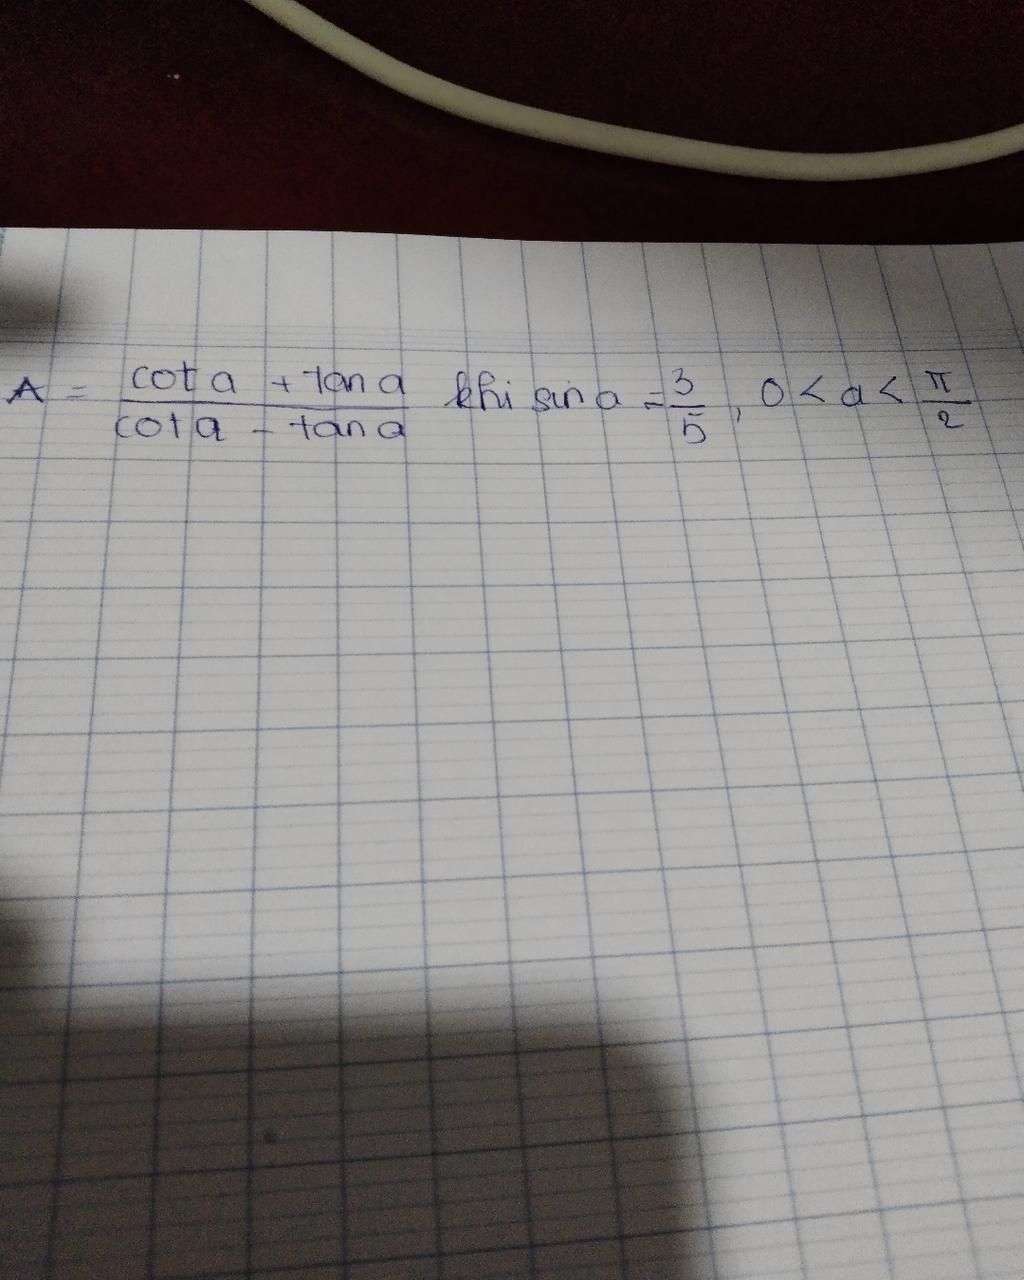 A = \frac{cot a + tan a}{cot a - tan a} khi sin a = \frac{3}{5}, 0 < a < \frac{π}{2}